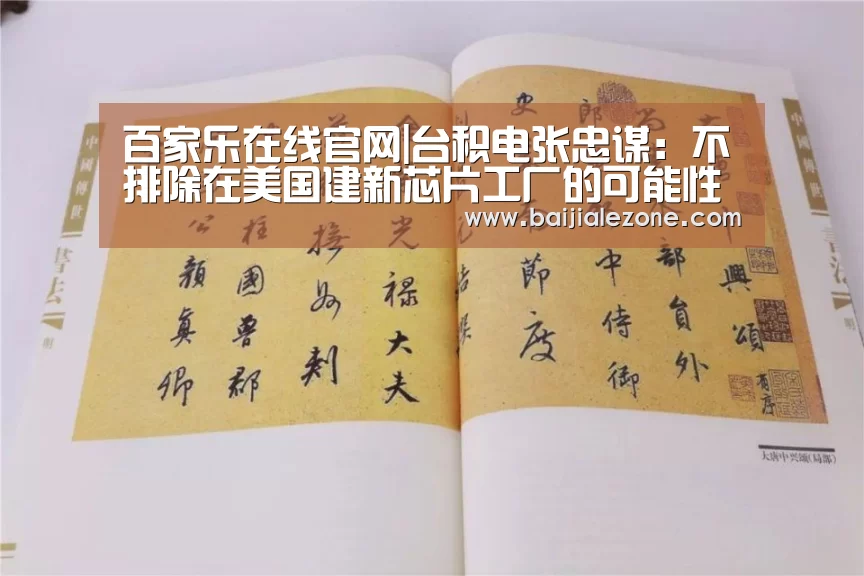 百家乐在线官网|台积电张忠谋：不
排除在美国建新芯片工厂的可能性
www.baijialezone.com
興頌
有序
部員外
郎
中侍御
史
節度
結撰
光祿大夫
撫州刺
柱國魯郡
公顏真卿
中國傳世
書法
明
大唐中興頌(局部)